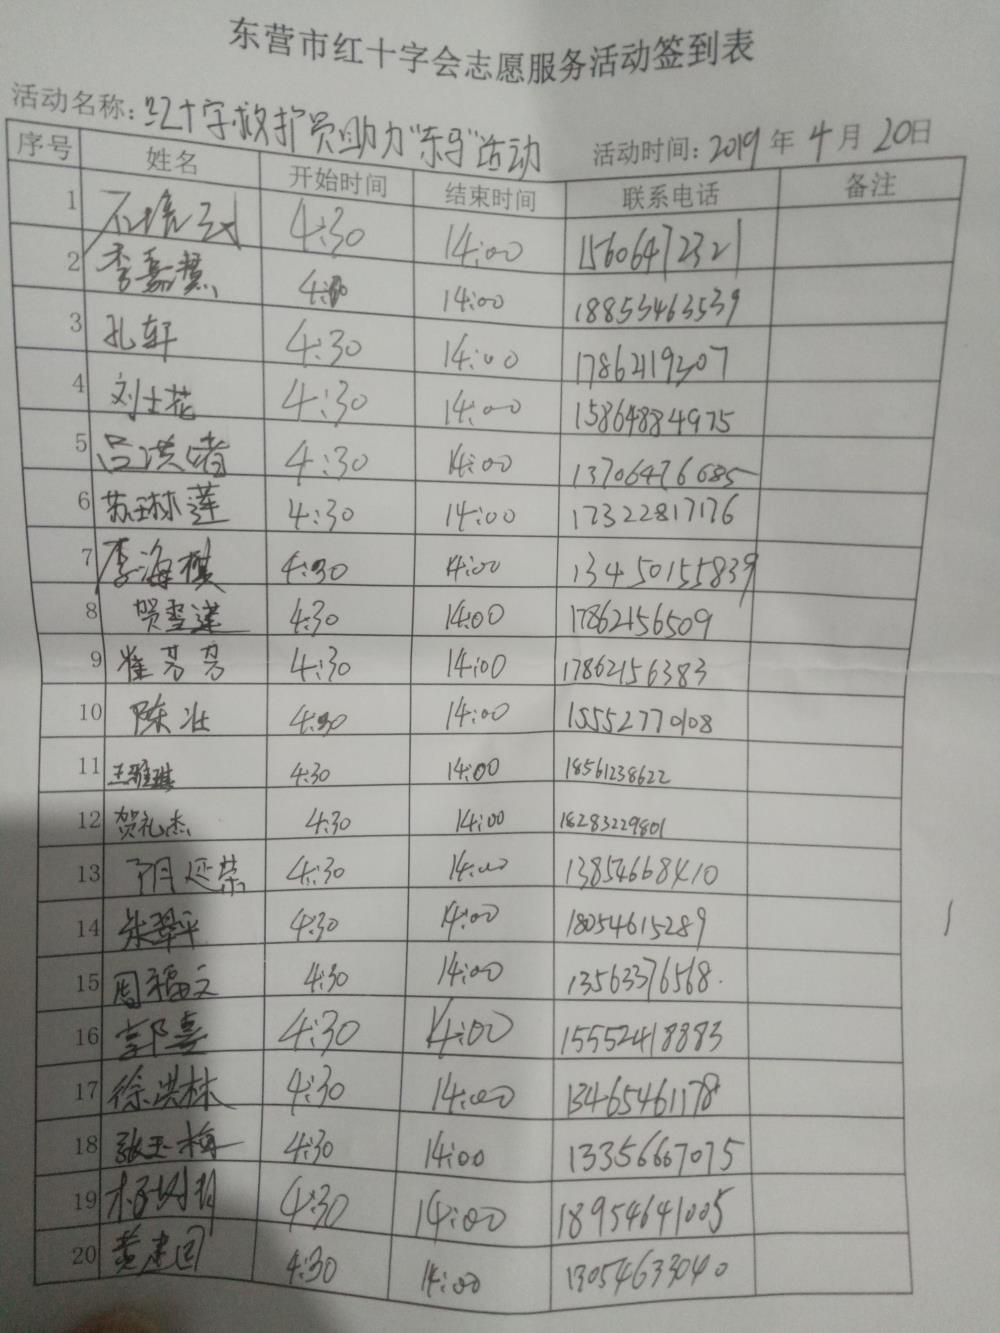 东营市红十字会志愿服务活动签到表
活动名称:红十字救护员助力"东马"活动 活动时间:2019年4月20日
序号 姓名 开始时间 结束时间 联系电话 备注
1 4:30 14:00 15606472321
2 李嘉慧 14:00 18853463539
3 孔轩 4:30 14:00 17862119307
4 刘士花 4:30 14:00 15864884975
5 吕洪绪 4:30 14:00 13706476685
6 苏琳莲 4:30 14:00 17322817176
7 李海棋 4:30 14:00 13450155839
8 贺雪莲 4:30 14:00 17862156509
9 崔芳芳 4:30 14:00 17862156383
10 陈壮 4:30 14:00 15552770108
11 王雅琪 4:30 14:00 18561238622
12 贺礼杰 4:30 14:00 18283229801
13 4:30 14:00 13854668410
14 朱翠平 4:30 14:00 18054615289
15 周福文 4:30 14:00 13563376568.
16 郭喜 4:30 14:00 15552418883
17 徐洪林 4:30 14:00 13465461178
18 张玉梅 4:30 14:00 13356667075
19 4:30 14:00 18954641005
20 黄建国 4:30 14:00 13054633040